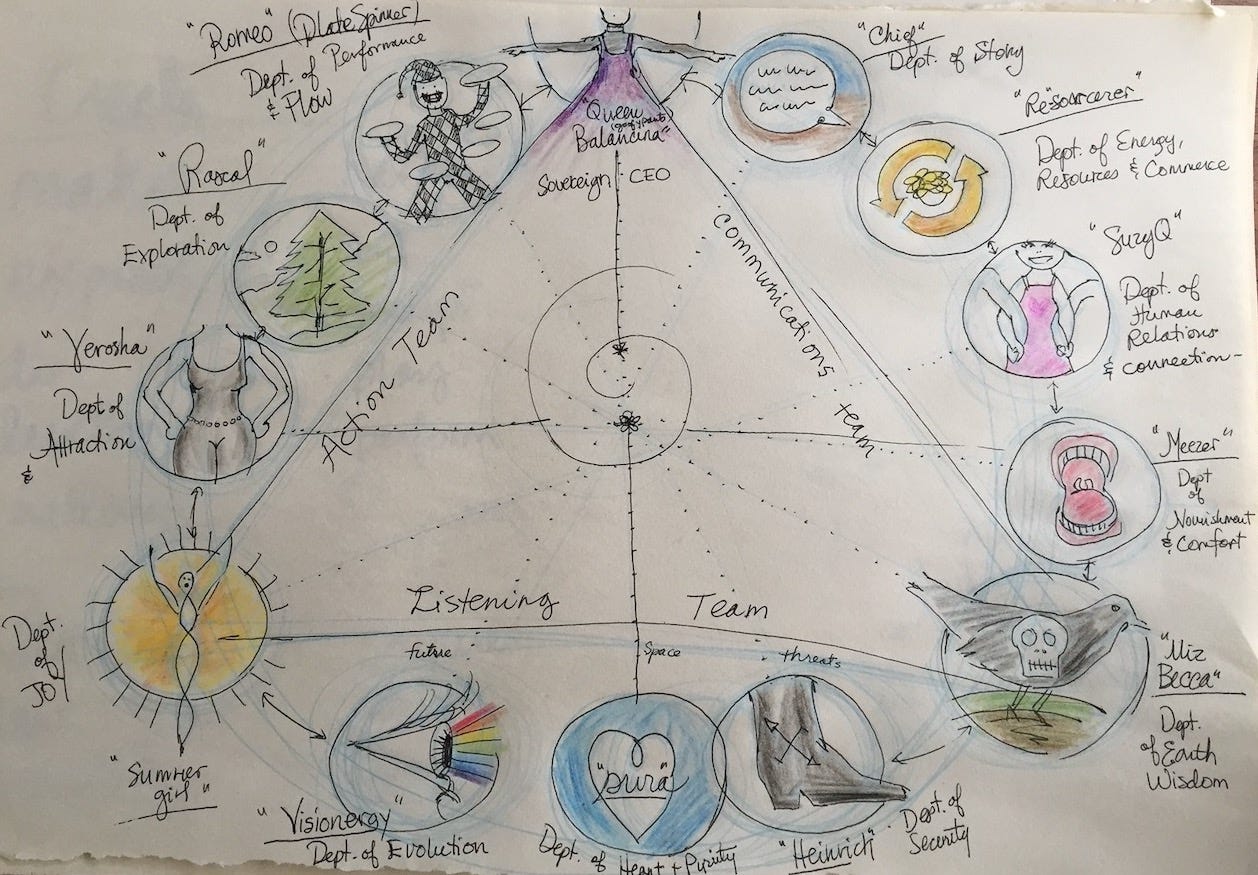 "Romeo" (Plate Spinner)
Dept. of Performance
& Flow
"Chief"
Dept. of Story
"Re"sourcerer"
Dept. of Energy,
Resources & Commerce
"Queen
(goofy pants)
Balancina"
Sovereign · CEO
"Rascal"
Dept. of
Exploration
"SuzyQ"
Dept. of
Human
Relations
& connection-
Action Team
Communications team
"Verosha"
Dept of
Attraction
&
"Meezer"
Dept
of
Nourishment
& Comfort
Listening Team
future
Space
threats
Dept.
of
JOY
"Summer
girl"
"Miz
Becca"
Dept.
of Earth
Wisdom
"Visionergy"
Dept. of Evolution
"pura"
Dept. of Heart + Purity
"Heinrich"
Dept. of
Security